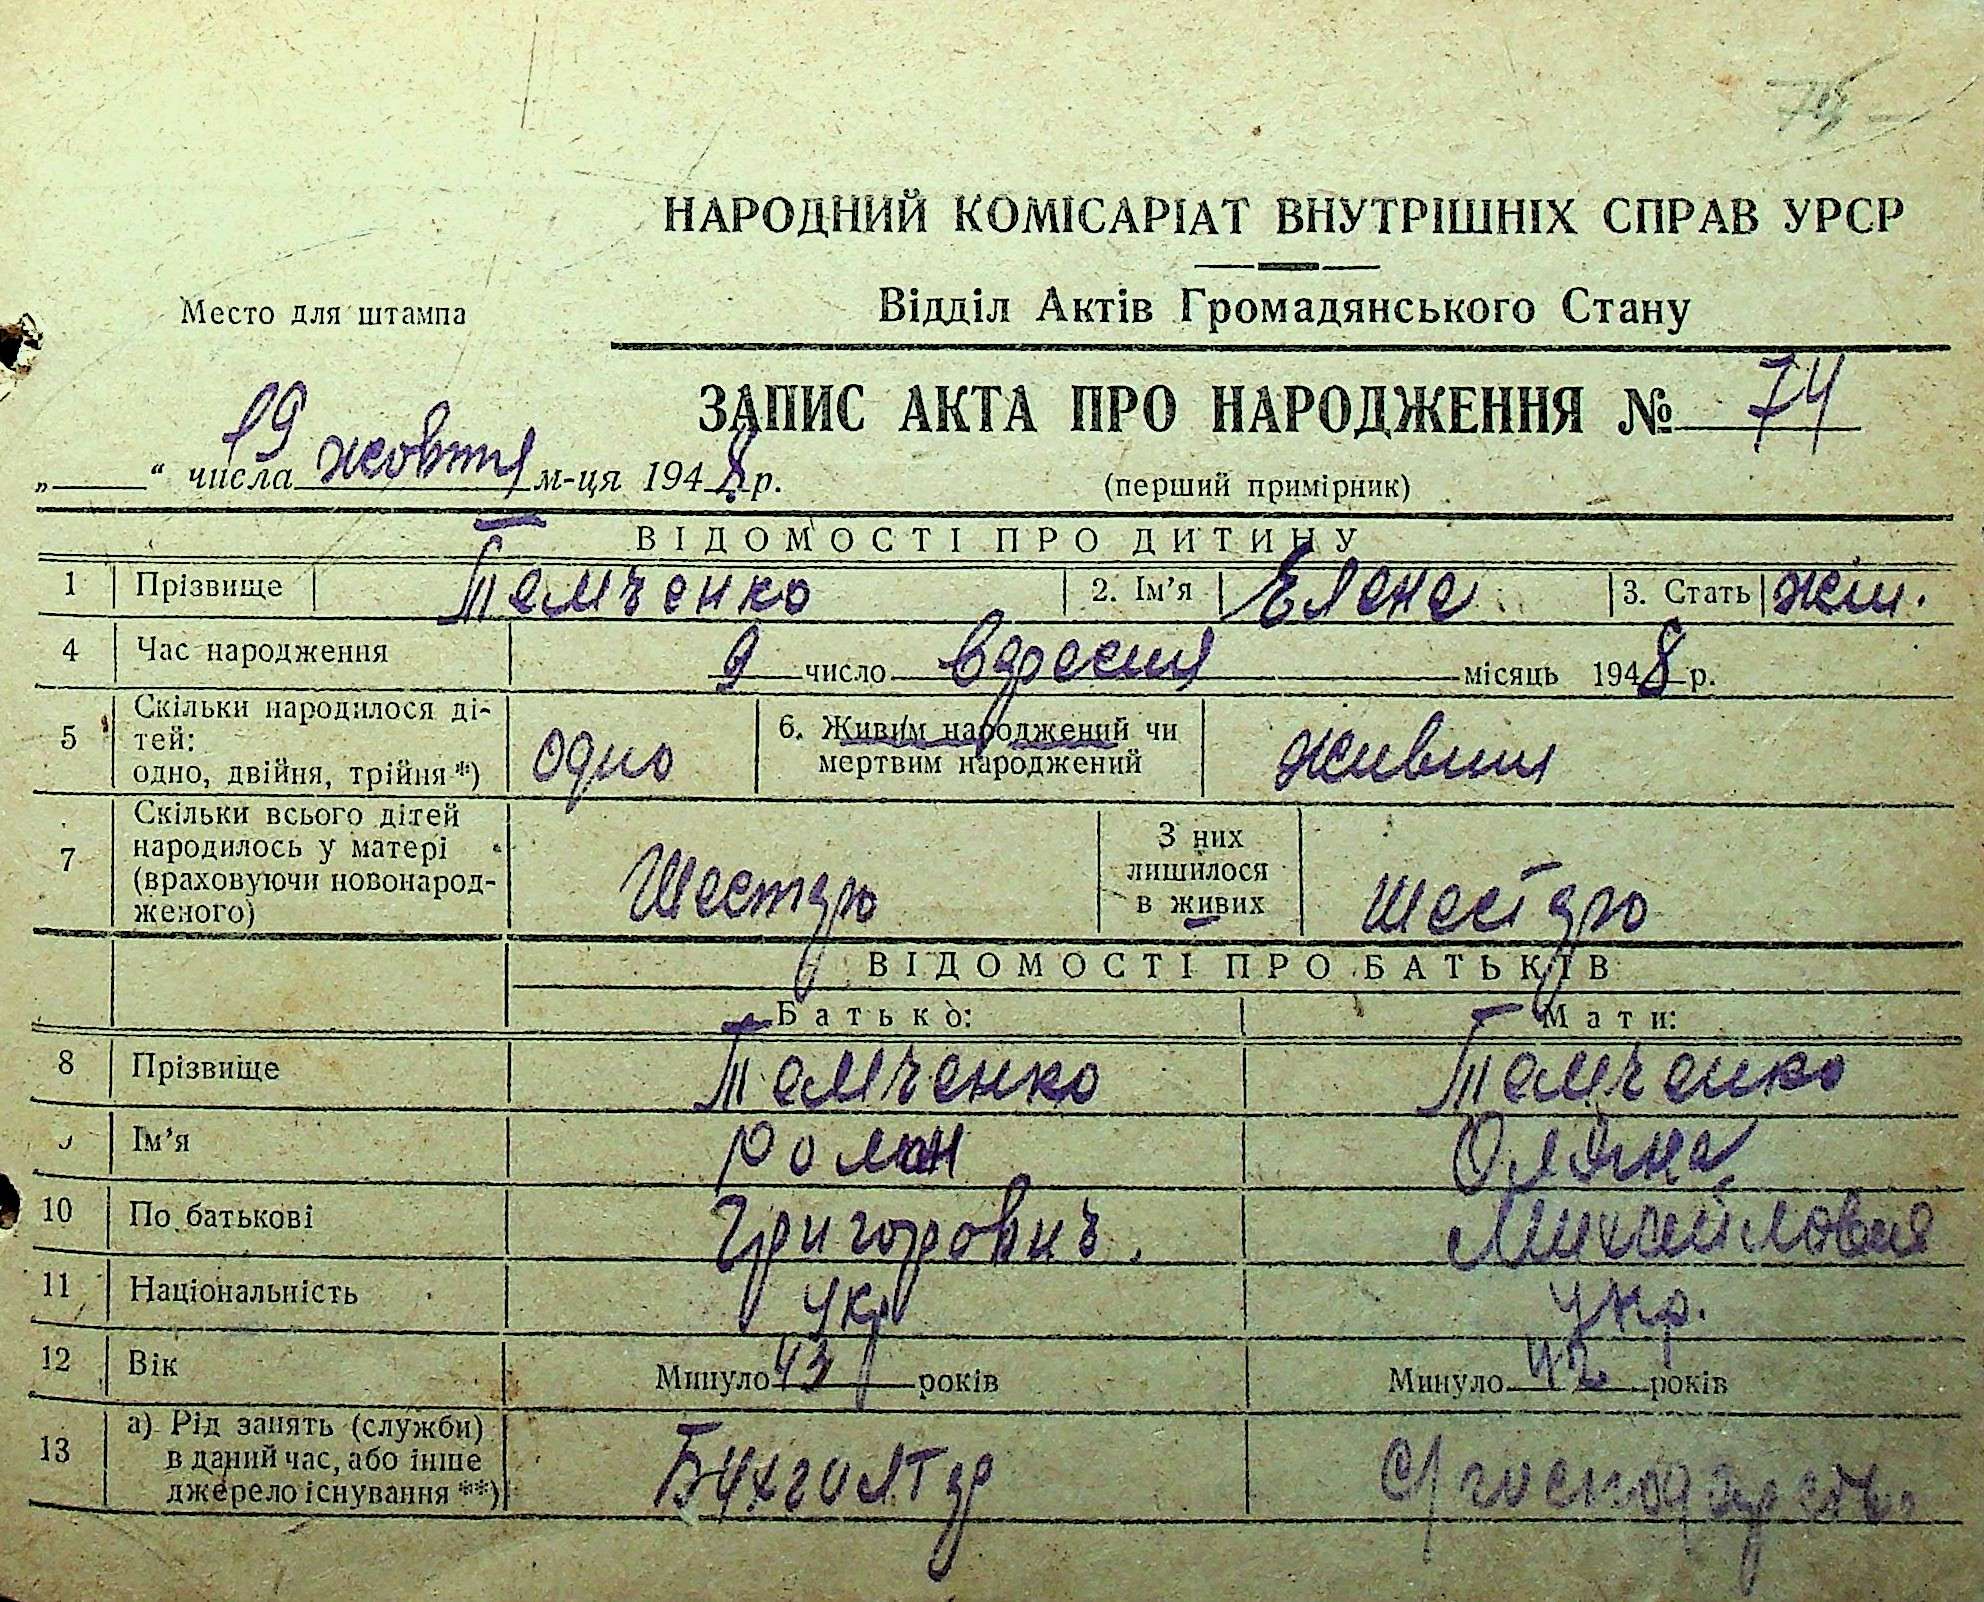 НАРОДНИЙ КОМІСАРІАТ ВНУТРІШНІХ СПРАВ УРСР
Место для штампа
Відділ Актів Громадянського Стану
ЗАПИС АКТА ПРО НАРОДЖЕННЯ № 74
„19“ числа жовтня м-ця 1948 р.
(перший примірник)
ВІДОМОСТІ ПРО ДИТИНУ
1 Прізвище Темченко 2. Ім’я Елена 3. Стать жін.
4 Час народження 9 число вересня місяць 1948 р.
5 Скільки народилося ді-
тей:
одно, двійня, трійня *) одно 6. Живим народжений чи
мертвим народжений живим
7 Скільки всього дітей
народилось у матері
(враховуючи новонарод-
женого) Шестеро З них
лишилося
в живих шестеро
ВІДОМОСТІ ПРО БАТЬКІВ
Батько: Мати:
8 Прізвище Темченко Темченко
Ім’я Роман Оляна
10 По батькові Григорович. Михайловна
11 Національність укр укр.
12 Вік Минуло 43 років Минуло 42 років
13 а) Рід занять (служби)
в даний час, або інше
джерело існування **) Бухгалтер